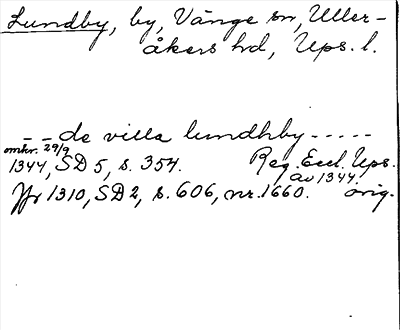 Lundby, by, Vänge sn, Uller-
åkers hd, Ups. l.
– – de villa lundhby - - - - -
omkr. 29/9
1344, SD 5, s. 354. Reg. Eccl. Ups.
av 1344.
Jfr 1310, SD 2, s. 606, nr. 1660. orig.